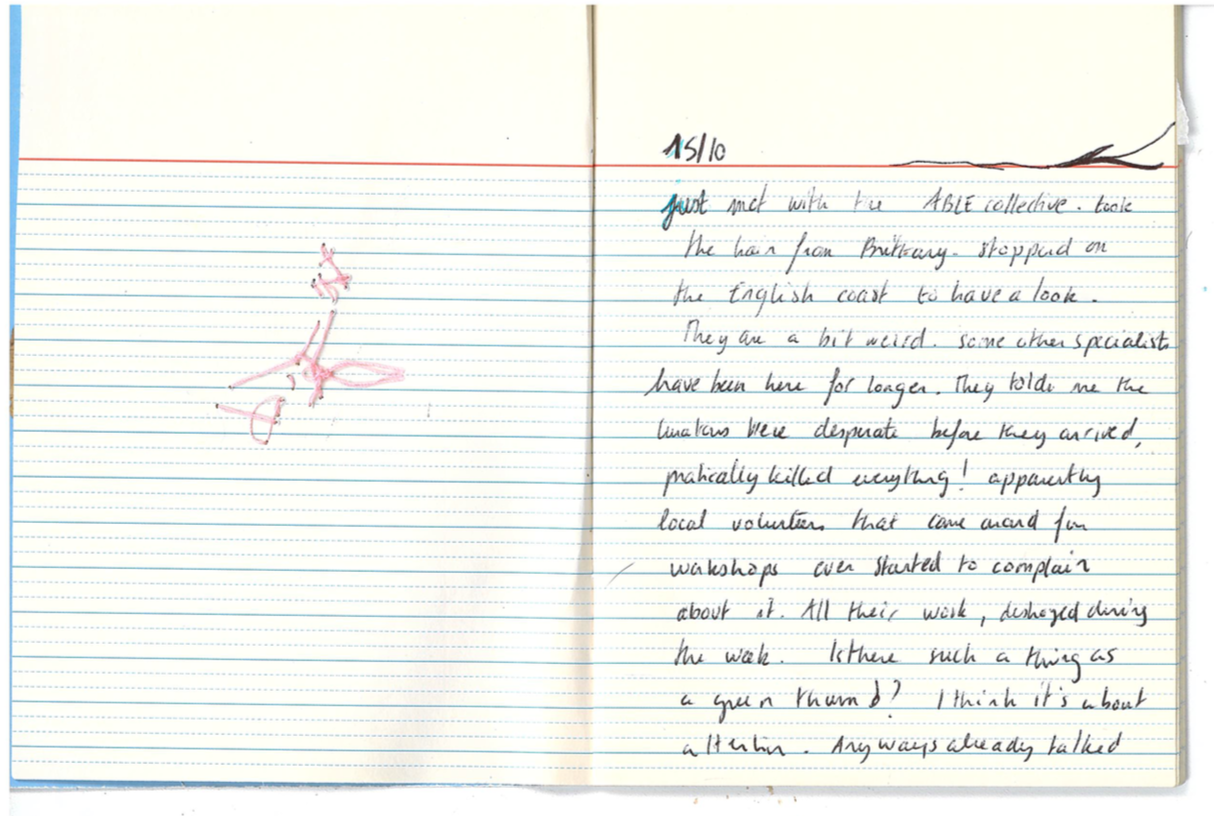 15/10
just met with the ABLE collective. took
the train from Brittany. stopped on
the English coast to have a look.
They are a bit weird. some other specialists
have been here for longer. They told me the
were desperate before they arrived,
pratically killed everything! apparently
local volunteers that came around for
workshops even started to complain
about it. All their work, destroyed during
the week. Is there such a thing as
a green thumb? I think it's about
attention. Anyways already talked